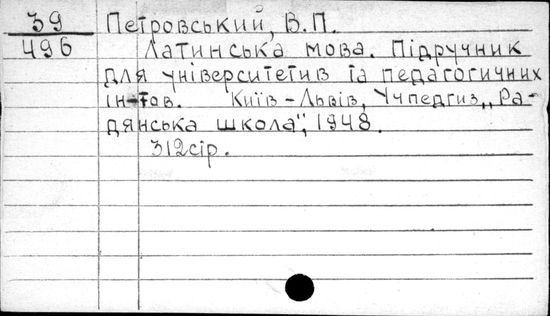 39
496
Петровський, В.П.
Латинська мова. Підручник
для університетив та педагогичних
ін-тов. Київ-Львів, Учпедгиз „Ра-
дянська школа", 1948.
312сір.